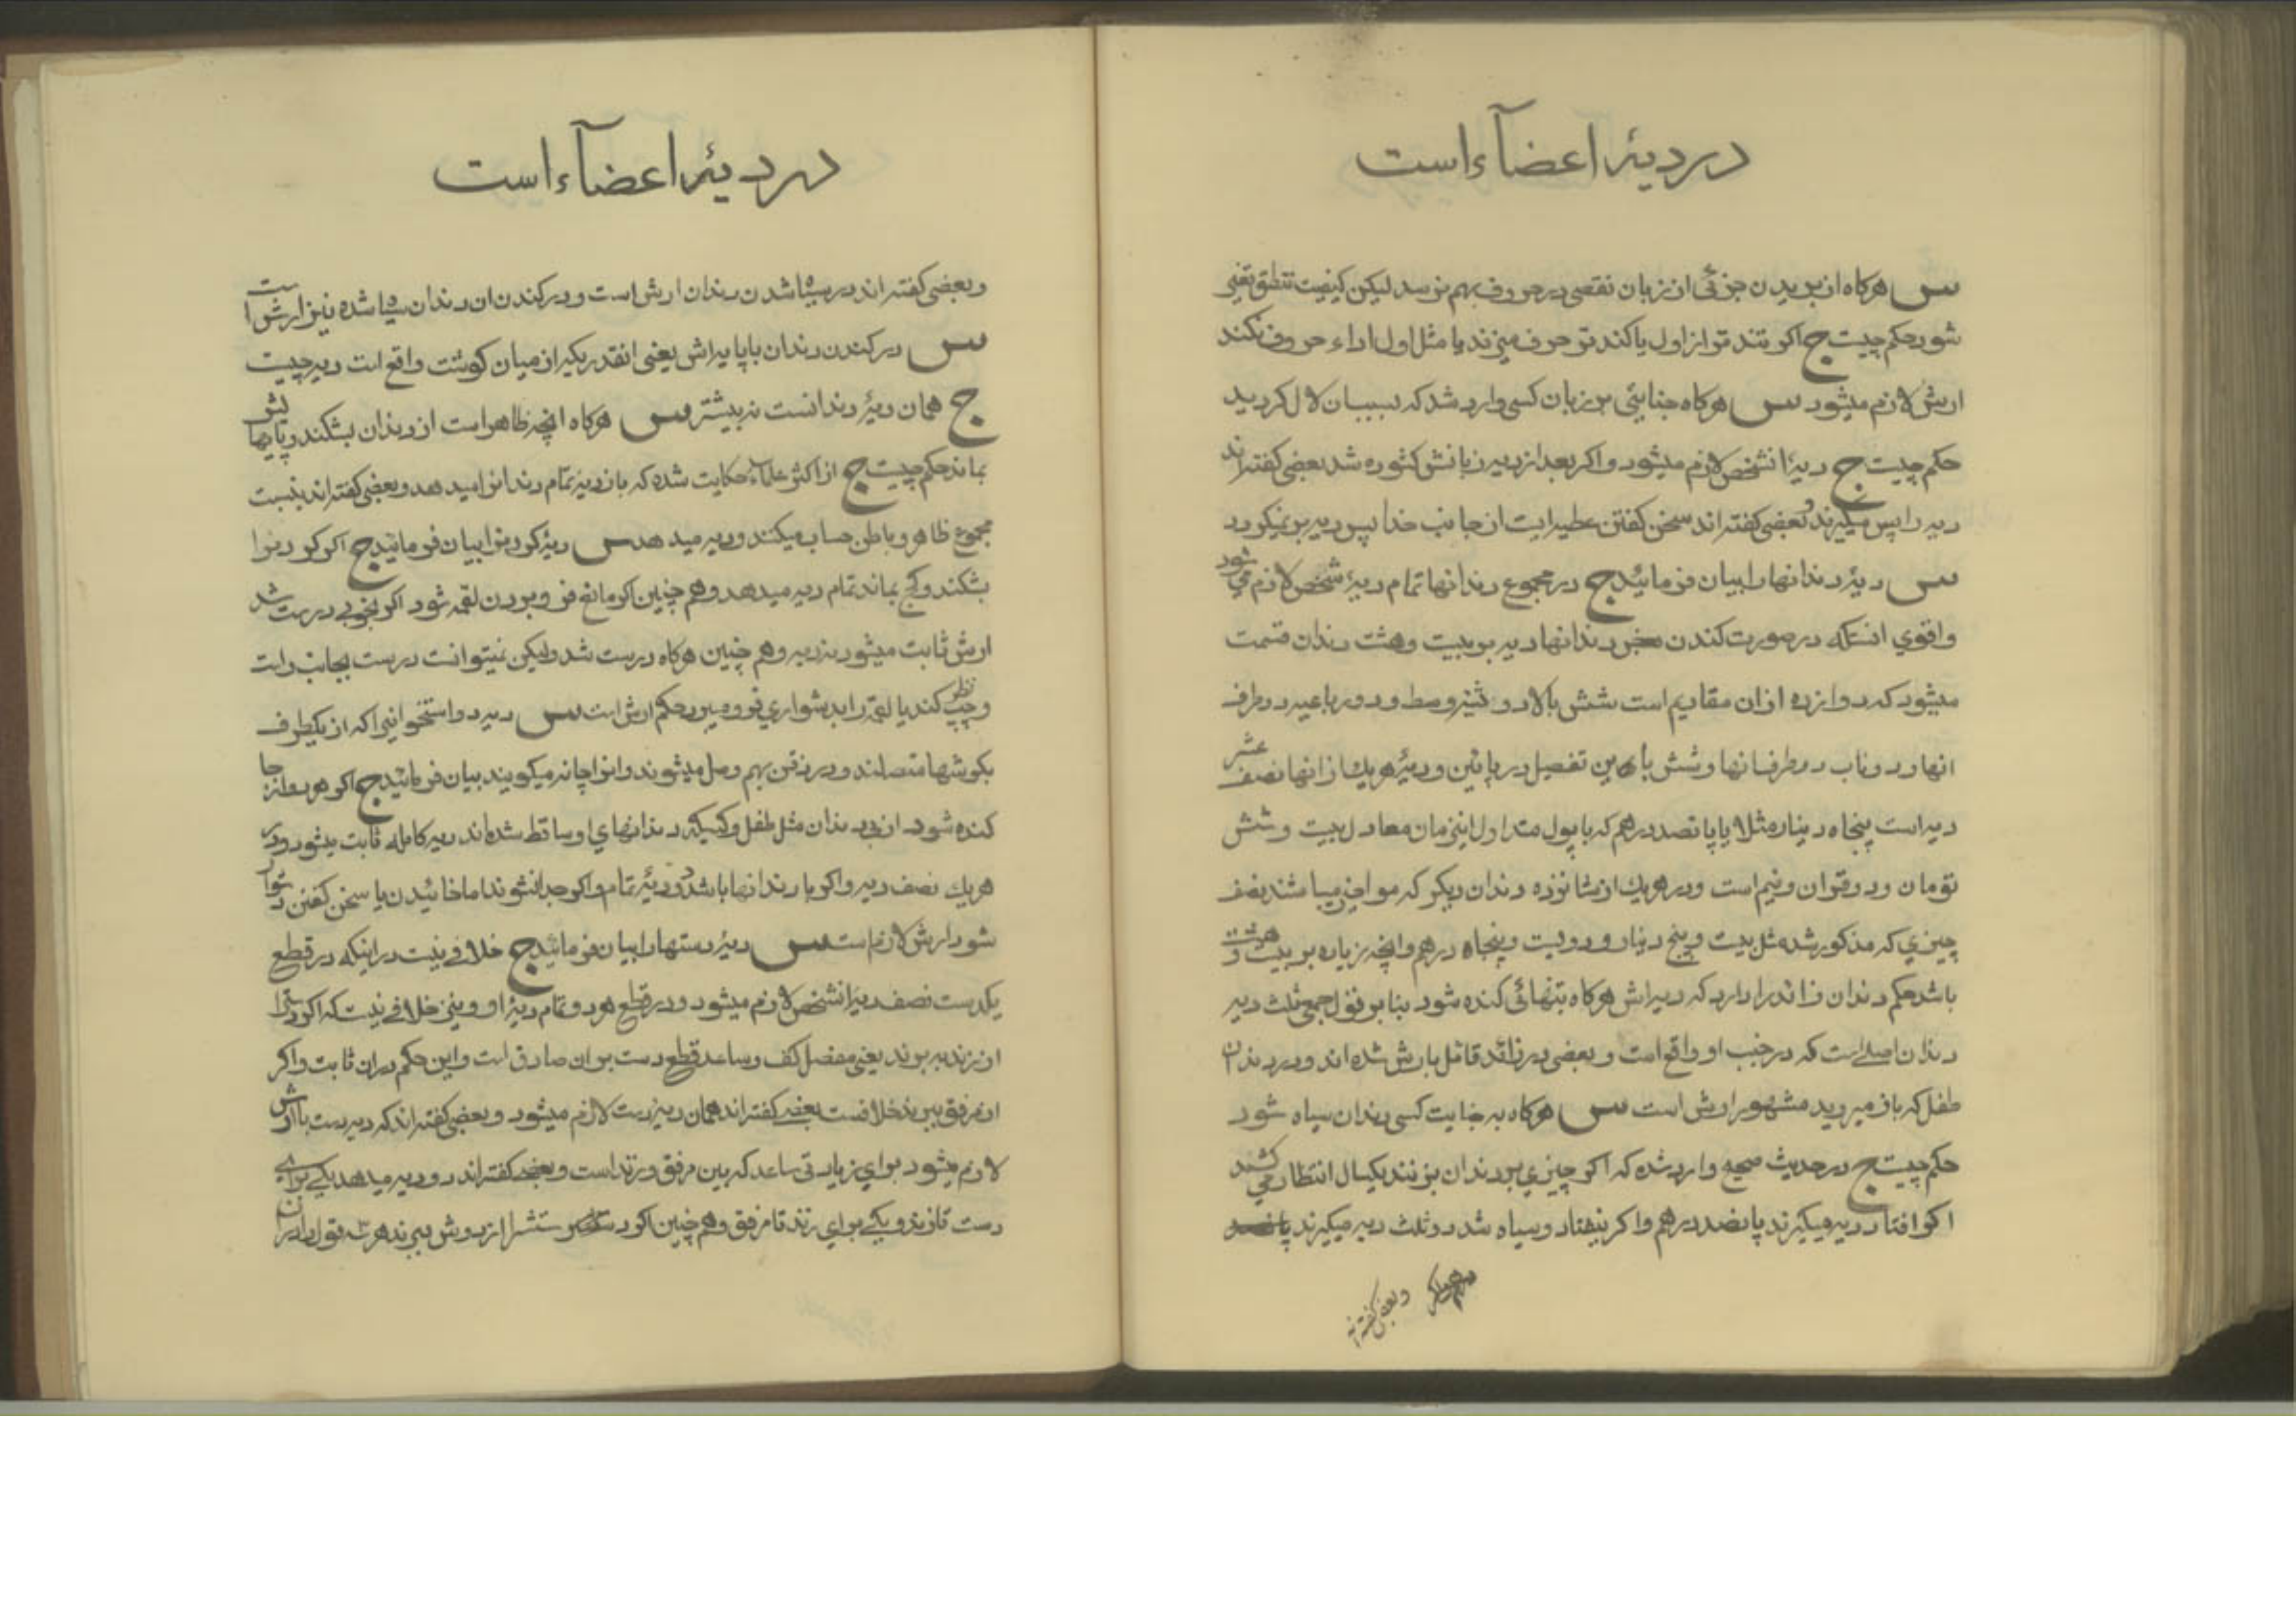 در دیۀ اعضآء است
س هرکاه از بریدن جزئی از زبان نقصی در حروف بهم نرسد لیکن کیفیت تنطق تغیر
شود حکم چیست ج اکر تند تر از اول یا کند تر حرف میزند یا مثل اول اداء حروف نکند
ارش لازم میشود س هرکاه جنایتی بر زبان کسی وارد شد که بسبب ان لال کردید
حکم چیست ج دیۀ انشخص لازم میشود و اکر بعد از دیه زبانش کشوده شد بعضی کفته اند
دیه را پس میکیرند و بعضی کفته اند سخن کفتن عطیه ایست از جانب خدا پس دیه بر نمیکردد
س دیۀ دندانها را بیان فرمائید ج در مجموع دندانها تمام دیۀ شخص لازم می شود
و اقوي انستکه در صورت کندن دندانها دیه بر بیست و هشت دندان قسمت
میشود که دوازده از ان مقادیم است شش بالا دو ثنیه وسط و دو رباعیه در طرف
انها و دو ناب در طرف انها و شش باهمین تفصیل در پائین و دیۀ هر یک از انها نصف عشر
دیه است پنجاه دینار مثلا یا پانصد درهم که با پول متداول اینزمان معادل بیست و شش
تومان و دو قران و نیم است و در هر یک از شانزده دندان دیکر که مواخیر میباشند نصف
چیزي که مذکور شد مثل بیست و پنج دینار و دویست و پنجاه درهم و انچه زیاده بر بیست و هشت
باشد حکم دندان زائد را دارد که دیه اش هرکاه بتنهائی کنده شود بنابر قول جمعی ثلث دیه
دندان اصلے است که در جنب او واقع است و بعضی در زائد قائل بارش شده اند و در دندان
طفل که باز میروید مشهور ارش است س هرکاه به جنایت کسی دندان سیاه شود
حکم چیست ج در حدیث صحیح وارد شده که اکر چیزي بر دندان بزنند یکسال انتظار می کشند
اکر افتاد دیه میکیرند پانصد درهم و اکر نیفتاد و سیاه شد دو ثلث دیه میکیرند
و بعضی کفته اند
در دیۀ اعضآء است
و بعضی کفته اند در سیاه شدن دندان ارش است و در کندن ان دندان سیاه شده نیز ارش است
س در کندن دندان باپایه اش یعنی انقدر یکه از میان کوشت واقع است دیه چیست
ج همان دیۀ دندانست نه بیشتر س هرکاه انچه ظاهر است از دندان بشکند و پایهایش
بماند حکم چیست ج از اکثر علماء حکایت شده که باز دیۀ تمام دندانرا میدهد و بعضی کفته اند بنسبت
مجموع ظاهر و باطن حساب میکند و دیه میدهد س دیۀ کردنرا بیان فرمائید ج اکر کردنرا
بشکند و کج بماند تمام دیه میدهد و هم چنین اکر مانع فرو بردن لقمه شود اکر بخوبی درست شد
ارش ثابت میشود نه دیه و هم چنین هرکاه درست شد ولیکن نمیتوانست درست بجانب راست
و چپ نظر کند یا لقمه را بدشواري فرو میبرد حکم ارش است س دیه دو استخوانیرا که از یکطرف
بکوشها متصلند و در زقن بهم وصل میشوند و انرا چانه میکویند بیان فرمائید ج اکر هر دو از جا
کنده شود از بی دندان مثل طفل و کسیکه دندانهاي او ساقط شده اند دیه کامله ثابت میشود و در
هر یک نصف دیه و اکر با دندانها باشد دو دیۀ تمام و اکر جدا نشوند اما خائیدن یا سخن کفتن دشوار
شود ارش لازم است س دیۀ دستها را بیان فرمائید ج خلافے نیست در اینکه در قطع
یکدست نصف دیۀ انشخص لازم میشود و در قطع هر دو تمام دیۀ او و نیز خلافے نیست که اکر دسترا
از زند ببرند یعنی مفصل کف و ساعد قطع دست بر ان صادق است و این حکم در ان ثابت و اکر
از مرفق ببرند خلافست بعضی کفته اند همان دیۀ دست لازم میشود و بعضی کفته اند که دیه دست با ارش
لازم میشود براي زیادتی ساعد که بین مرفق و زند است و بعضی کفته اند دو دیه میدهد یکے براے
دست تا زند و یکے براي زند تا مرفق و هم چنین اکر دستش را از دوش ببرند هر سه قول در ان